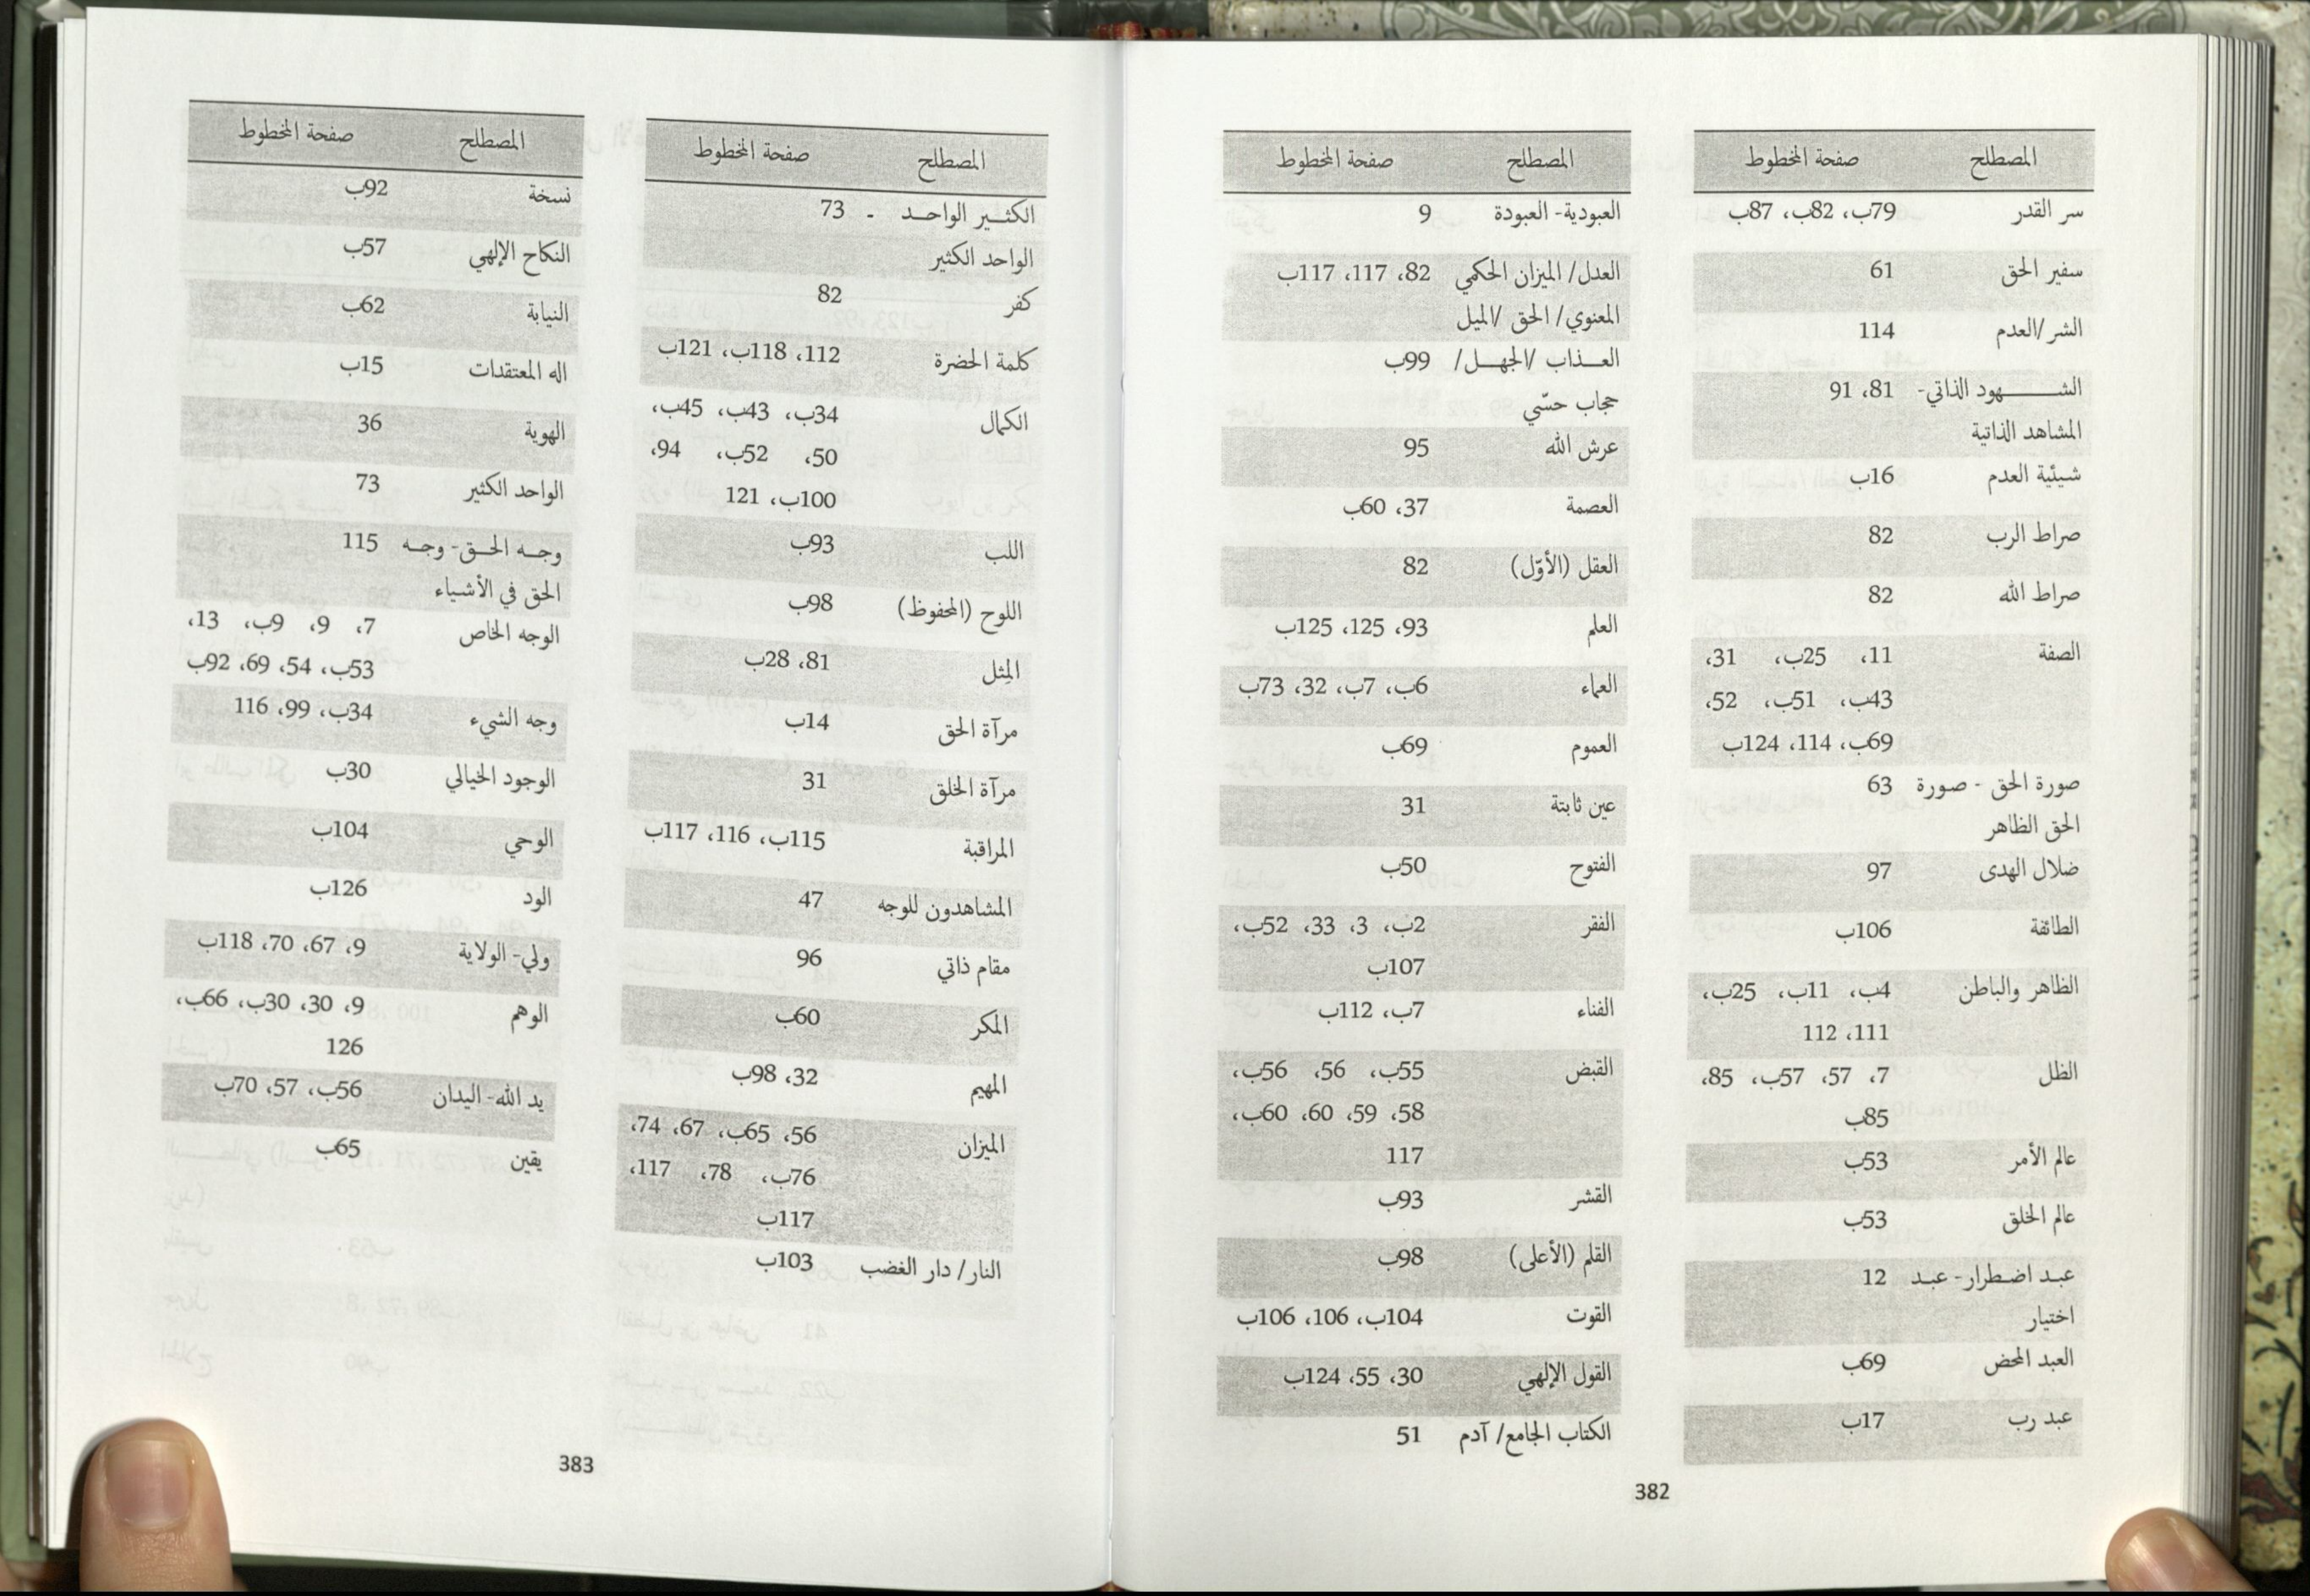 المصطلح صفحة المخطوط
سر القدر 79ب، 82ب، 87ب
سفير الحق 61
الشر/العدم 114
الشـــــهود الذاتي- 81، 91
المشاهد الذاتية
شيئية العدم 16ب
صراط الرب 82
صراط الله 82
الصفة 11، 25ب، 31،
43ب، 51ب، 52،
69ب، 114، 124ب
صورة الحق - صورة 63
الحق الظاهر
ضلال الهدى 97
الطائفة 106ب
الظاهر والباطن 4ب، 11ب، 25ب،
111، 112
الظل 7، 57، 57ب، 85،
85ب
عالم الأمر 53ب
عالم الخلق 53ب
عبد اضطرار- عبد 12
اختيار
العبد المحض 69ب
عبد رب 17ب
المصطلح صفحة المخطوط
العبودية- العبودة 9
العدل/ الميزان الحكمي 82، 117، 117ب
المعنوي/ الحق /الميل
العـــذاب /الجهـــل/ 99ب
حجاب حسّي
عرش الله 95
العصمة 37، 60ب
العقل (الأوّل) 82
العلم 93، 125، 125ب
العماء 6ب، 7ب، 32، 73ب
العموم 69ب
عين ثابتة 31
الفتوح 50ب
الفقر 2ب، 3، 33، 52ب،
107ب
الفناء 7ب، 112ب
القبض 55ب، 56، 56ب،
58، 59، 60، 60ب،
117
القشر 93ب
القلم (الأعلى) 98ب
القوت 104ب، 106، 106ب
القول الإلهي 30، 55، 124ب
الكتاب الجامع/ آدم 51
382
المصطلح صفحة المخطوط
الكثـــير الواحـــد - 73
الواحد الكثير
كفر 82
كلمة الحضرة 112، 118ب، 121ب
الكمال 34ب، 43ب، 45ب،
50، 52ب، 94،
100ب، 121
اللب 93ب
اللوح (المحفوظ) 98ب
المِثل 81، 28ب
مرآة الحق 14ب
مرآة الخلق 31
المراقبة 115ب، 116، 117ب
المشاهدون للوجه 47
مقام ذاتي 96
المكر 60ب
المهيم 32، 98ب
الميزان 56، 65ب، 67، 74،
76ب، 78، 117،
117ب
النار/ دار الغضب 103ب
المصطلح صفحة المخطوط
نسخة 92ب
النكاح الإلهي 57ب
النيابة 62ب
اله المعتقدات 15ب
الهوية 36
الواحد الكثير 73
وجـه الحـق- وجـه 115
الحق في الأشياء
الوجه الخاص 7، 9، 9ب، 13،
53ب، 54، 69، 92ب
وجه الشيء 34ب، 99، 116
الوجود الخيالي 30ب
الوحي 104ب
الود 126ب
ولي- الولاية 9، 67، 70، 118ب
الوهم 9، 30، 30ب، 66ب،
126
يد الله- اليدان 56ب، 57، 70ب
يقين 65ب
383